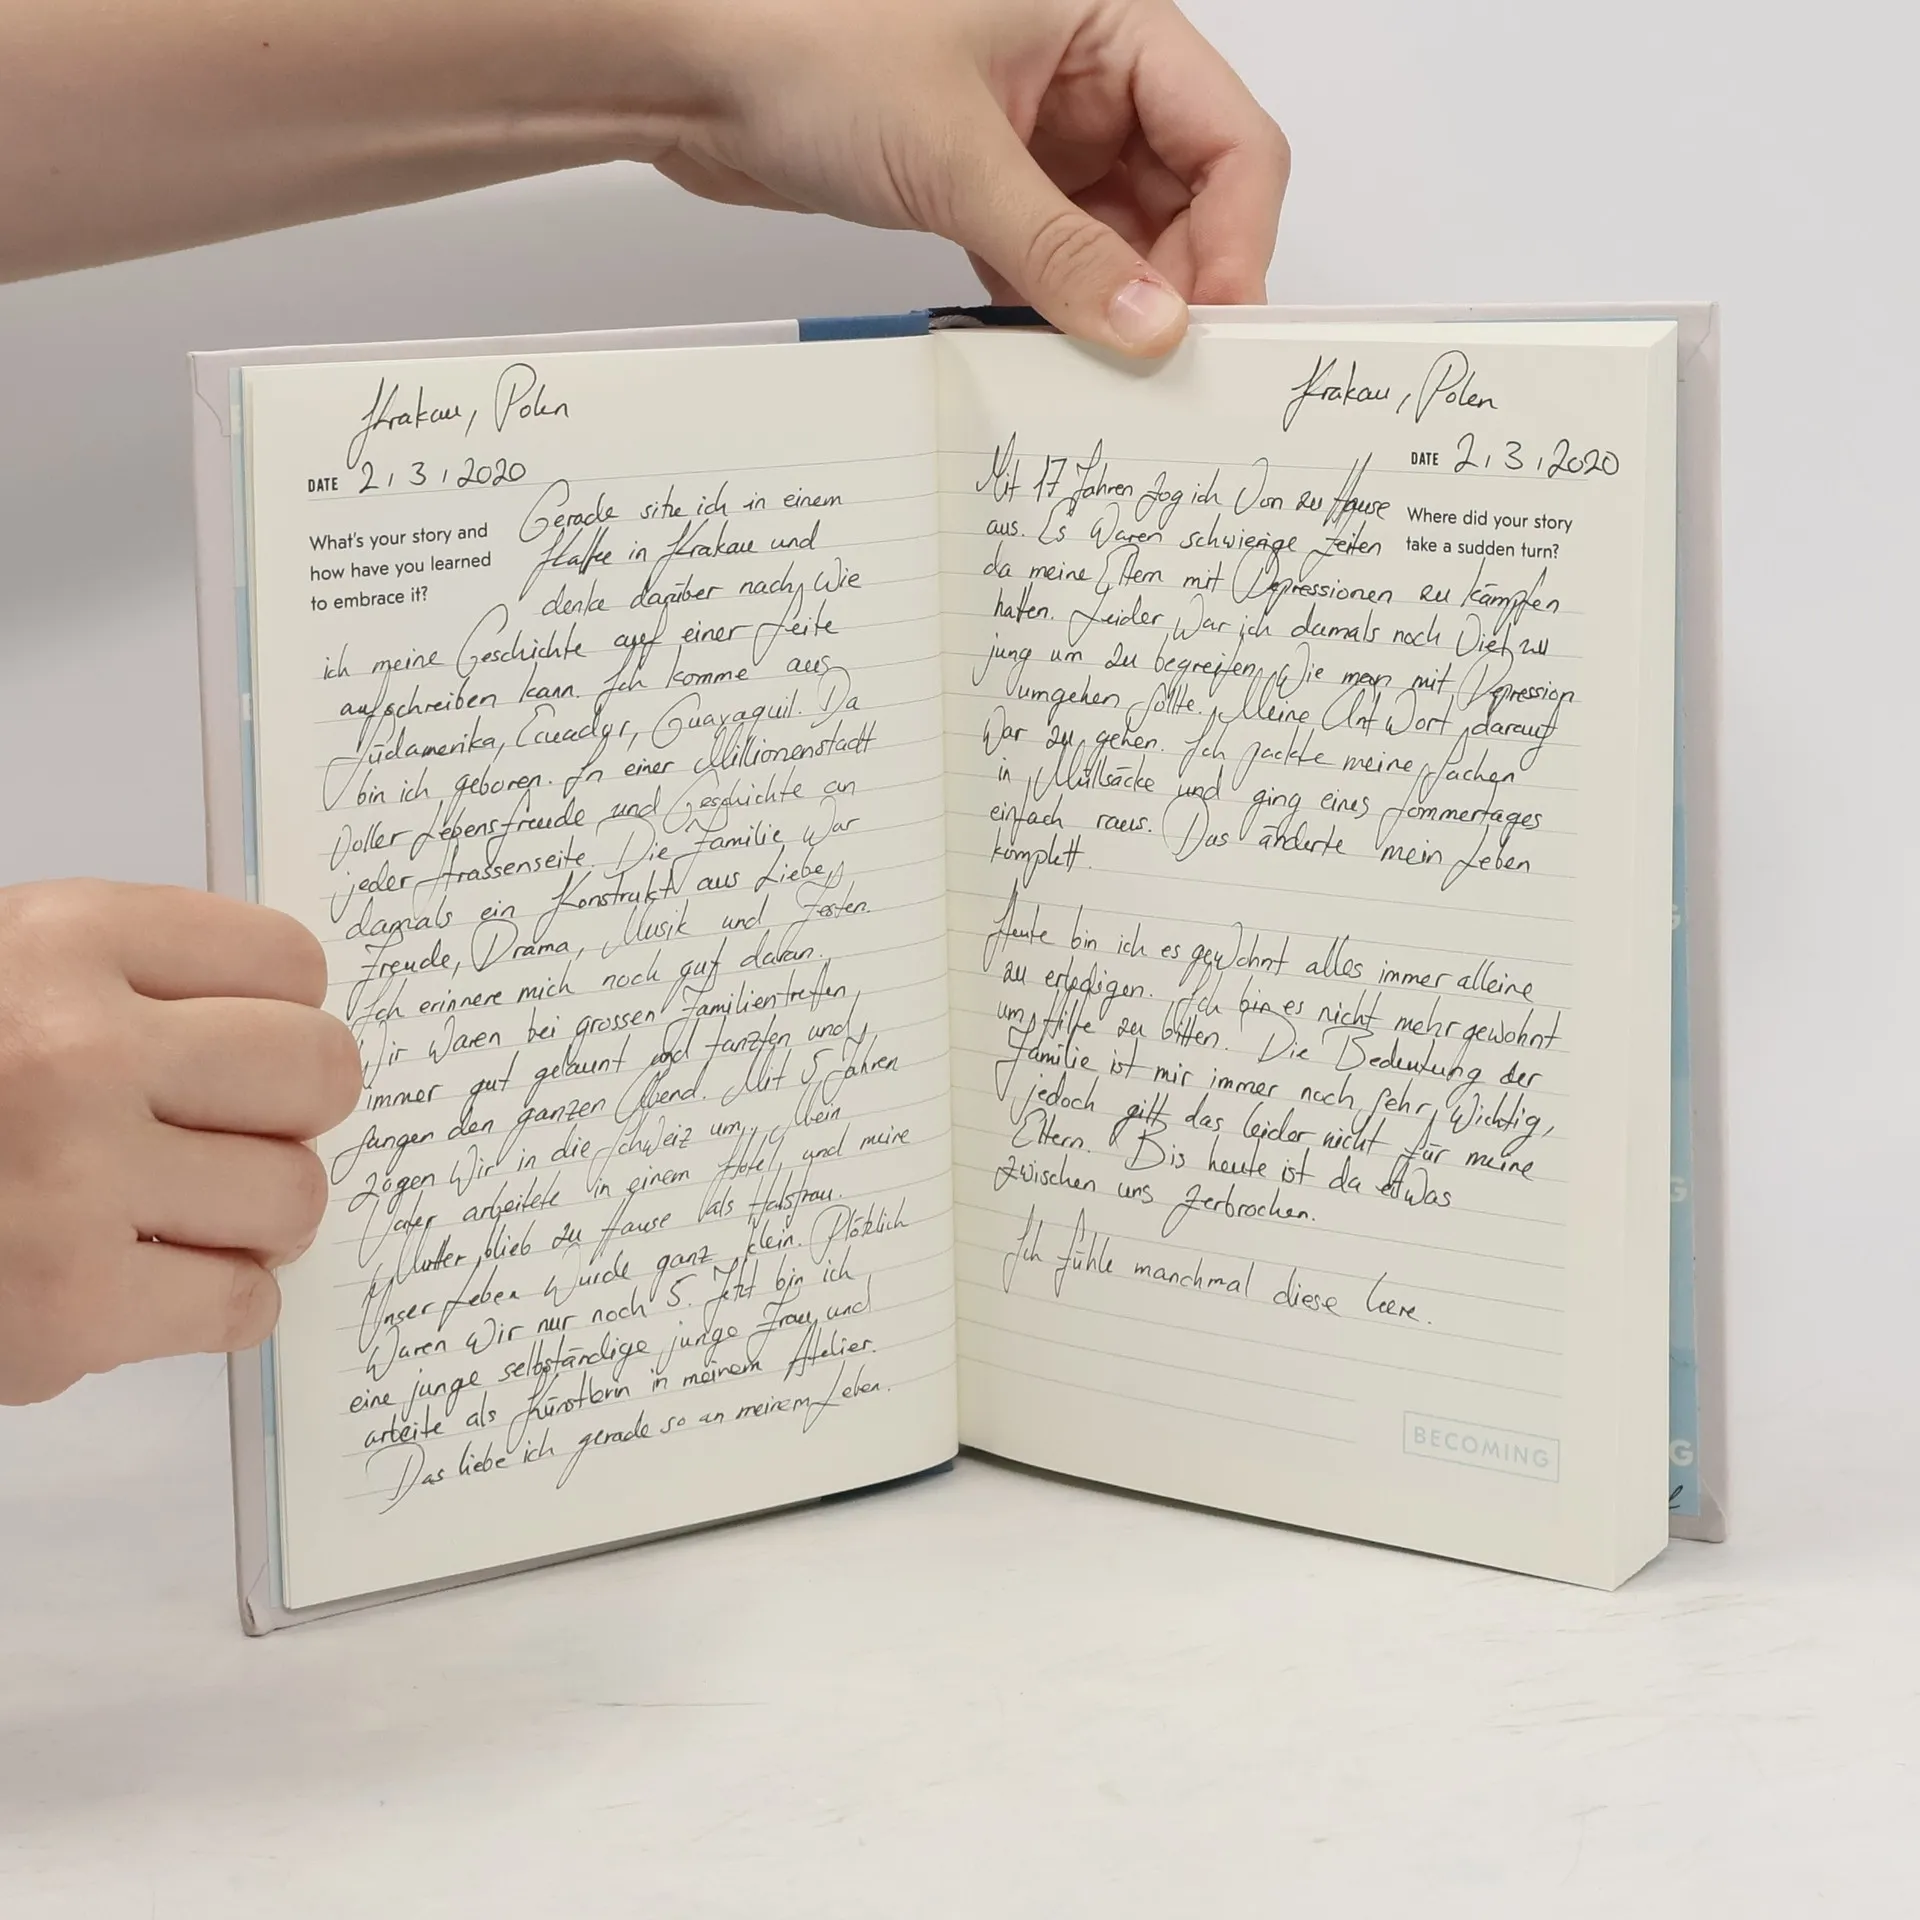 Krakau, Polen
DATE 2 / 3 / 2020
What's your story and
how have you learned
to embrace it?
Gerade sitze ich in einem
Kaffee in Krakau und
denke darüber nach, wie
ich meine Geschichte auf einer Seite
aufschreiben kann. Ich komme aus
Südamerika, Ecuador, Guayaquil. Da
bin ich geboren. In einer Millionenstadt
voller Lebensfreude und Geschichte an
jeder Strassenseite. Die Familie war
damals ein Konstrukt aus Liebe,
Freude, Drama, Musik und Festen.
Ich erinnere mich noch gut daran.
Wir waren bei grossen Familientreffen,
immer gut gelaunt und tanzten und
sangen den ganzen Abend. Mit 5 Jahren
zogen wir in die Schweiz um. Mein
Vater arbeitete in einem Hotel, und meine
Mutter blieb zu Hause als Hausfrau.
Unser Leben wurde ganz klein. Plötzlich
waren wir nur noch 5. Jetzt bin ich
eine junge selbständige junge Frau und
arbeite als Künstlerin in meinem Atelier.
Das liebe ich gerade so an meinem Leben.
Krakau, Polen
DATE 2 / 3 / 2020
Where did your story
take a sudden turn?
Mit 17 Jahren zog ich von zu Hause
aus. Es waren schwierige Zeiten
da meine Eltern mit Depressionen zu kämpfen
hatten. Leider war ich damals noch viel zu
jung um zu begreifen, wie man mit Depression
umgehen sollte. Meine Antwort darauf
war zu gehen. Ich packte meine Sachen
in Müllsäcke und ging eines Sommertages
einfach raus. Das änderte mein Leben
komplett.
Heute bin ich es gewohnt alles immer alleine
zu erledigen. Ich bin es nicht mehr gewohnt
um Hilfe zu bitten. Die Bedeutung der
Familie ist mir immer noch sehr wichtig,
jedoch gilt das leider nicht für meine
Eltern. Bis heute ist da etwas
zwischen uns zerbrochen.
Ich fühle manchmal diese leere.
BECOMING